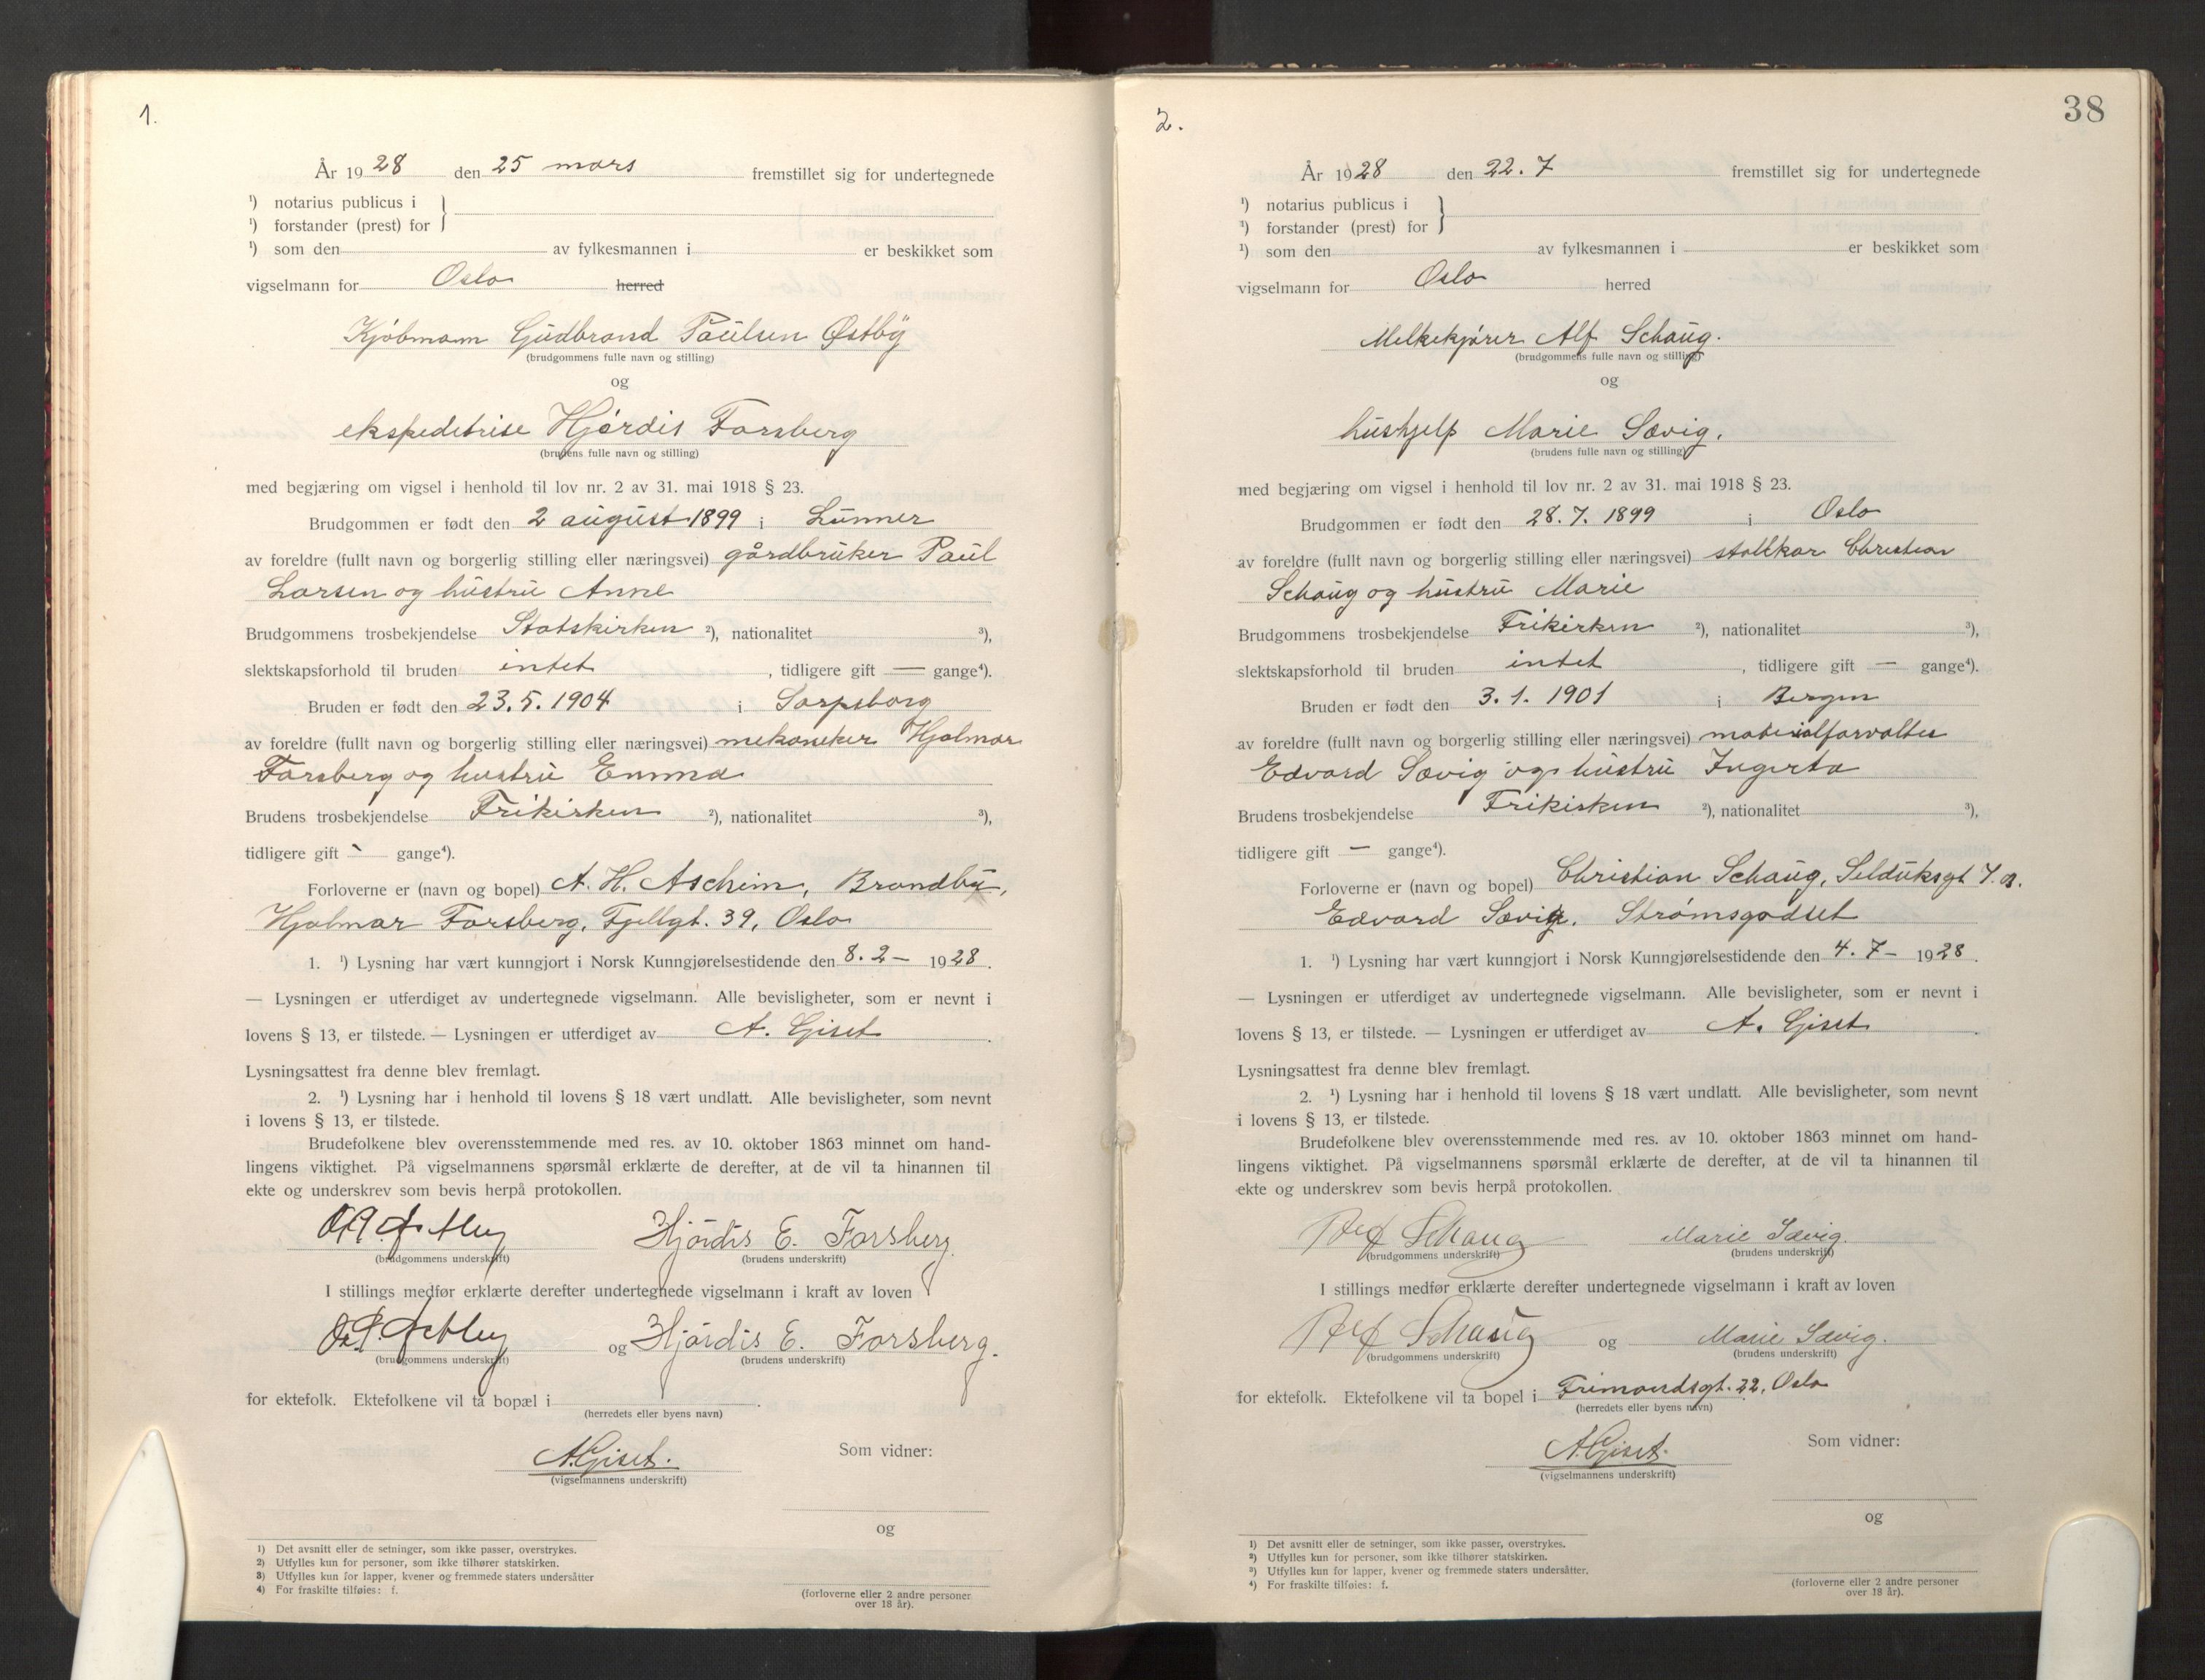 1.
År 1928 den 25 mars fremstillet sig for undertegnede
¹) notarius publicus i
¹) forstander (prest) for }
¹) som den av fylkesmannen i er beskikket som
vigselmann for Oslo herred
Kjøbmann Gudbrand Paulsen Østby
(brudgommens fulle navn og stilling)
og
ekspeditrise Hjørdis Forsberg
(brudens fulle navn og stilling)
med begjæring om vigsel i henhold til lov nr. 2 av 31. mai 1918 § 23.
Brudgommen er født den 2 august 1899 i Lunner
av foreldre (fullt navn og borgerlig stilling eller næringsvei) gårdbruker Paul
Larsen og hustru Anne
Brudgommens trosbekjendelse Statskirken ²), nationalitet ³),
slektskapsforhold til bruden intet , tidligere gift — gange⁴).
Bruden er født den 23.5.1904 i Sarpsborg
av foreldre (fullt navn og borgerlig stilling eller næringsvei) mekaniker Hjalmar
Forsberg og hustru Emma
Brudens trosbekjendelse Frikirken ²), nationalitet ³),
tidligere gift - gange⁴).
Forloverne er (navn og bopel) A. H. Aschim, Brandbu,
Hjalmar Forsberg, Fjellgt. 39, Oslo
1. ¹) Lysning har vært kunngjort i Norsk Kunngjørelsestidende den 8.2- 1928.
— Lysningen er utferdiget av undertegnede vigselmann. Alle bevisligheter, som er nevnt i
lovens § 13, er tilstede. — Lysningen er utferdiget av A. Giset.
Lysningsattest fra denne blev fremlagt.
2. ¹) Lysning har i henhold til lovens § 18 vært undlatt. Alle bevisligheter, som nevnt
i lovens § 13, er tilstede.
Brudefolkene blev overensstemmende med res. av 10. oktober 1863 minnet om hand-
lingens viktighet. På vigselmannens spørsmål erklærte de derefter, at de vil ta hinannen til
ekte og underskrev som bevis herpå protokollen.
Hjördis E. Forsberg
(brudgommens underskrift) (brudens underskrift)
I stillings medfør erklærte derefter undertegnede vigselmann i kraft av loven
og Hjördis E. Forsberg.
(brudgommens underskrift) (brudens underskrift)
for ektefolk. Ektefolkene vil ta bopæl i .
(herredets eller byens navn)
A. Giset.
(vigselmannens underskrift)
Som vidner:
og
(forloverne eller 2 andre personer
over 18 år).
1) Det avsnitt eller de setninger, som ikke passer, overstrykes.
2) Utfylles kun for personer, som ikke tilhører statskirken.
3) Utfylles kun for lapper, kvener og fremmede staters undersåtter
4) For fraskilte tilføies: f.
2.
38
År 1928 den 22.7 fremstillet sig for undertegnede
¹) notarius publicus i
¹) forstander (prest) for }
¹) som den av fylkesmannen i er beskikket som
vigselmann for Oslo herred
Melkekjører Alf Schaug.
(brudgommens fulle navn og stilling)
og
hushjelp Marie Sævig.
(brudens fulle navn og stilling)
med begjæring om vigsel i henhold til lov nr. 2 av 31. mai 1918 § 23.
Brudgommen er født den 28.7.1899 i Oslo
av foreldre (fullt navn og borgerlig stilling eller næringsvei) stallkar Christian
Schaug og hustru Marie
Brudgommens trosbekjendelse Frikirken ²), nationalitet ³),
slektskapsforhold til bruden intet , tidligere gift — gange⁴).
Bruden er født den 3.1.1901 i Bergen
av foreldre (fullt navn og borgerlig stilling eller næringsvei) materialforvalter
Edvard Sævig og hustru Ingerta
Brudens trosbekjendelse Frikirken ²), nationalitet ³),
tidligere gift — gange⁴).
Forloverne er (navn og bopel) Christian Schaug, Selduksgt 7.
Edvard Sævig, Strømsgodset
1. ¹) Lysning har vært kunngjort i Norsk Kunngjørelsestidende den 4.7- 1928.
— Lysningen er utferdiget av undertegnede vigselmann. Alle bevisligheter, som er nevnt i
lovens § 13, er tilstede. — Lysningen er utferdiget av A. Giset.
Lysningsattest fra denne blev fremlagt.
2. ¹) Lysning har i henhold til lovens § 18 vært undlatt. Alle bevisligheter, som nevnt
i lovens § 13, er tilstede.
Brudefolkene blev overensstemmende med res. av 10. oktober 1863 minnet om hand-
lingens viktighet. På vigselmannens spørsmål erklærte de derefter, at de vil ta hinannen til
ekte og underskrev som bevis herpå protokollen.
Alf Schaug Marie Sævig.
(brudgommens underskrift) (brudens underskrift)
I stillings medfør erklærte derefter undertegnede vigselmann i kraft av loven
Alf Schaug og Marie Sævig.
(brudgommens underskrift) (brudens underskrift)
for ektefolk. Ektefolkene vil ta bopel i Frimandsgt. 22, Oslo
(herredets eller byens navn)
A. Giset.
(vigselmannens underskrift)
Som vidner:
og
(forloverne eller 2 andre personer
over 18 år).
¹) Det avsnitt eller de setninger, som ikke passer, overstrykes.
²) Utfylles kun for personer, som ikke tilhører statskirken.
³) Utfylles kun for lapper, kvener og fremmede staters undersåtter.
⁴) For fraskilte tilføies: f.